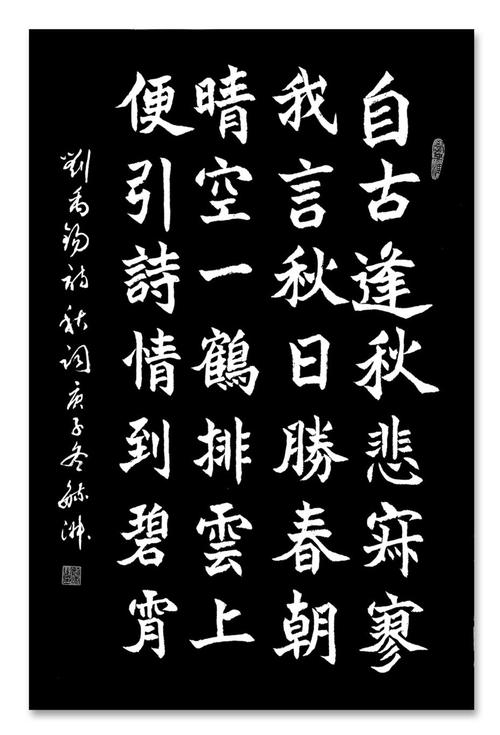 自古逢秋悲寂寥
我言秋日勝春朝
晴空一鶴排雲上
便引詩情到碧霄
劉禹錫詩秋詞庚子冬毓